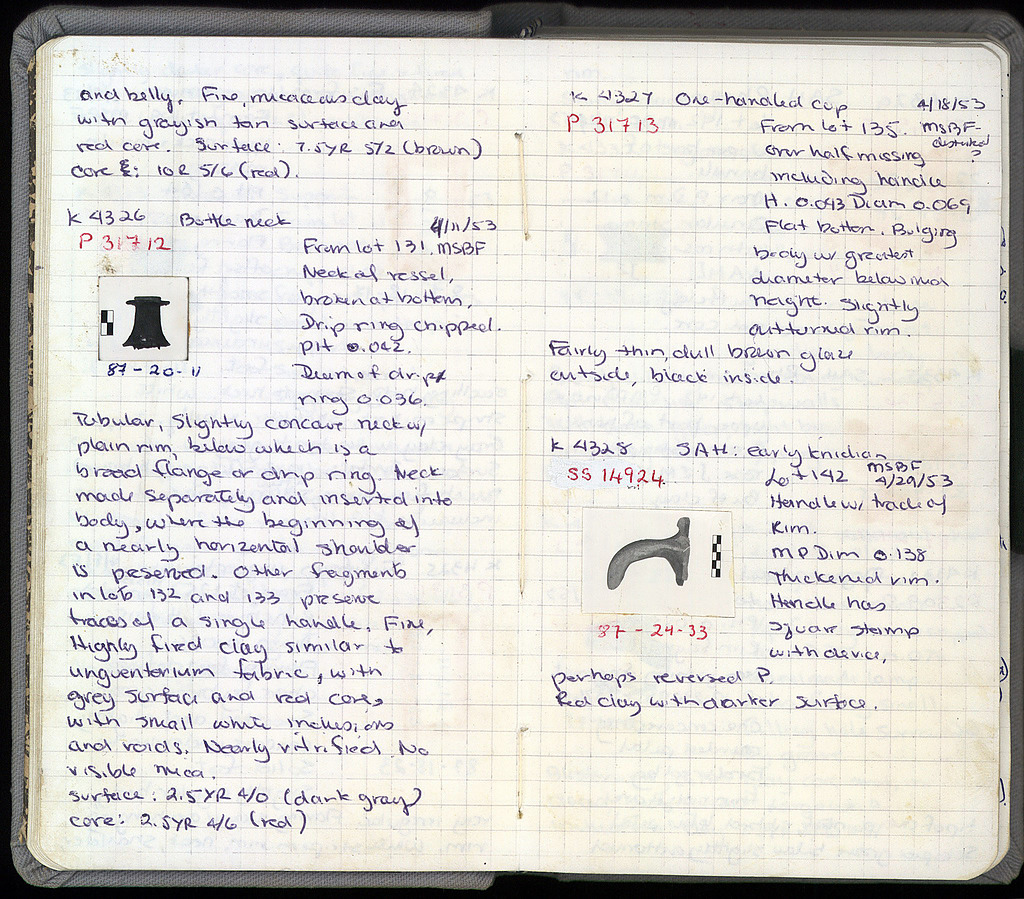 and belly. Fine, micaceous clay
with grayish tan surface and
red core. Surface: 7.5YR 5/2 (brown)
core: 10R 5/6 (red).
K 4326 Bottle neck 4/11/53
P 31712 From lot 131. MSBF
Neck of vessel,
broken at bottom,
Drip ring chipped.
PH 0.042.
Diam of drip
ring 0.036.
87-20-11
Tubular, slightly concave neck w/
plain rim, below which is a
broad flange or drip ring. Neck
made separately and inserted into
body, where the beginning of
a nearly horizontal shoulder
is preserved. Other fragments
in lots 132 and 133 preserve
traces of a single handle. Fine,
Highly fired clay similar to
unguentarium fabric, with
grey surface and red core,
with small white inclusions
and voids. Nearly vitrified No
visible mica.
surface: 2.5YR 4/0 (dark gray)
core: 2.5YR 4/6 (red)
K 4327 One-handled cup 4/18/53
P 31713 From lot 135. MSBF-
disturbed
?
Over half missing
including handle
H. 0.043 Diam 0.069
Flat bottom. Bulging
body w/ greatest
diameter below mid
height. Slightly
outturned rim.
Fairly thin, dull brown glaze
outside, black inside.
K 4328 SAH: early Knidian
SS 14924 Lot 142 MSBF
4/29/53
Handle w/ trace of
Rim.
MP Dim 0.138
Thickened rim.
Handle has
square stamp
with device,
87-24-33
perhaps reversed P.
Red clay with darker surface.